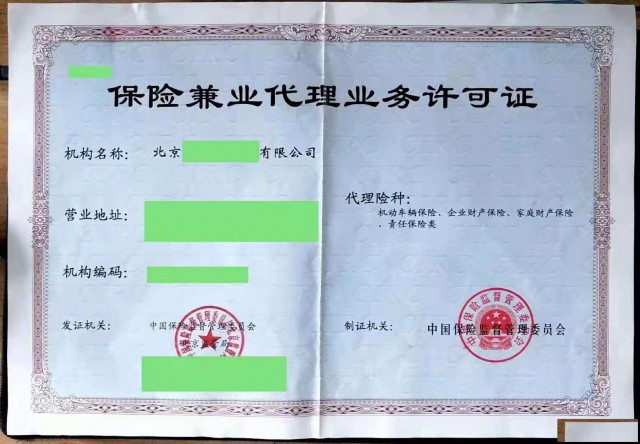 保险兼业代理业务许可证
机构名称: 北京 有限公司
营业地址:
机构编码:
发证机关: 中国保险监督管理委员会
北京监管局
代理险种:
机动车辆保险、企业财产保险、家庭财产保险
、责任保险类
制证机关: 中国保险监督管理委员会
中国保险监督管理委员会